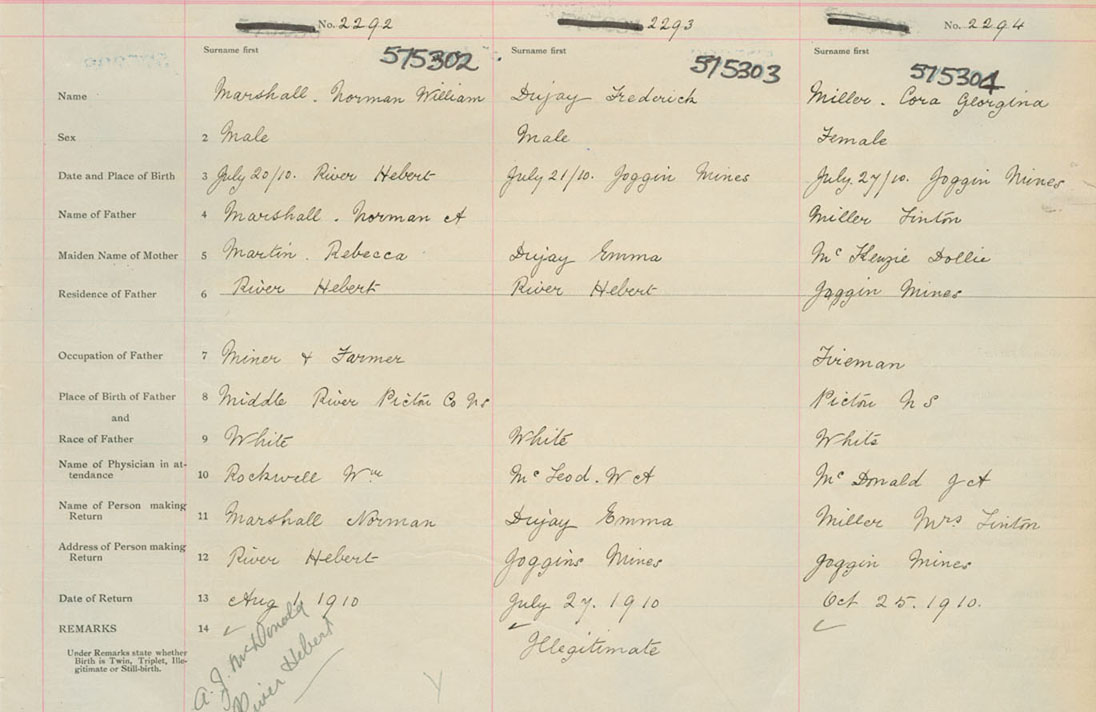 No. 2292 2293 No. 2294
Surname first Surname first Surname first
575302 575303 575304
Name Marshall. Norman William Dujay Frederick Miller. Cora Georgina
Sex 2 Male Male Female
Date and Place of Birth 3 July 20/10. River Hebert July 21/10. Joggin Mines July. 27/10. Joggin Mines
Name of Father 4 Marshall. Norman A Miller Linton
Maiden Name of Mother 5 Martin. Rebecca Dujay Emma Mc Kenzie Dollie
Residence of Father 6 River Hebert River Hebert Joggin Mines
Occupation of Father 7 Miner & Farmer Fireman
Place of Birth of Father 8 Middle River Pictou Co NS Pictou N S
and
Race of Father 9 White White White
Name of Physician in at-
tendance 10 Rockwell Wm Mc Leod. W A Mc Donald J A
Name of Person making
Return 11 Marshall Norman Dujay Emma Miller Mrs Linton
Address of Person making
Return 12 River Hebert Joggins Mines Joggin Mines
Date of Return 13 Aug 1 1910 July 27. 1910 Oct 25. 1910.
REMARKS 14
Under Remarks state whether
Birth is Twin, Triplet, Ille-
gitimate or Still-birth.
Illegitimate
A. J. McDonald
River Hebert